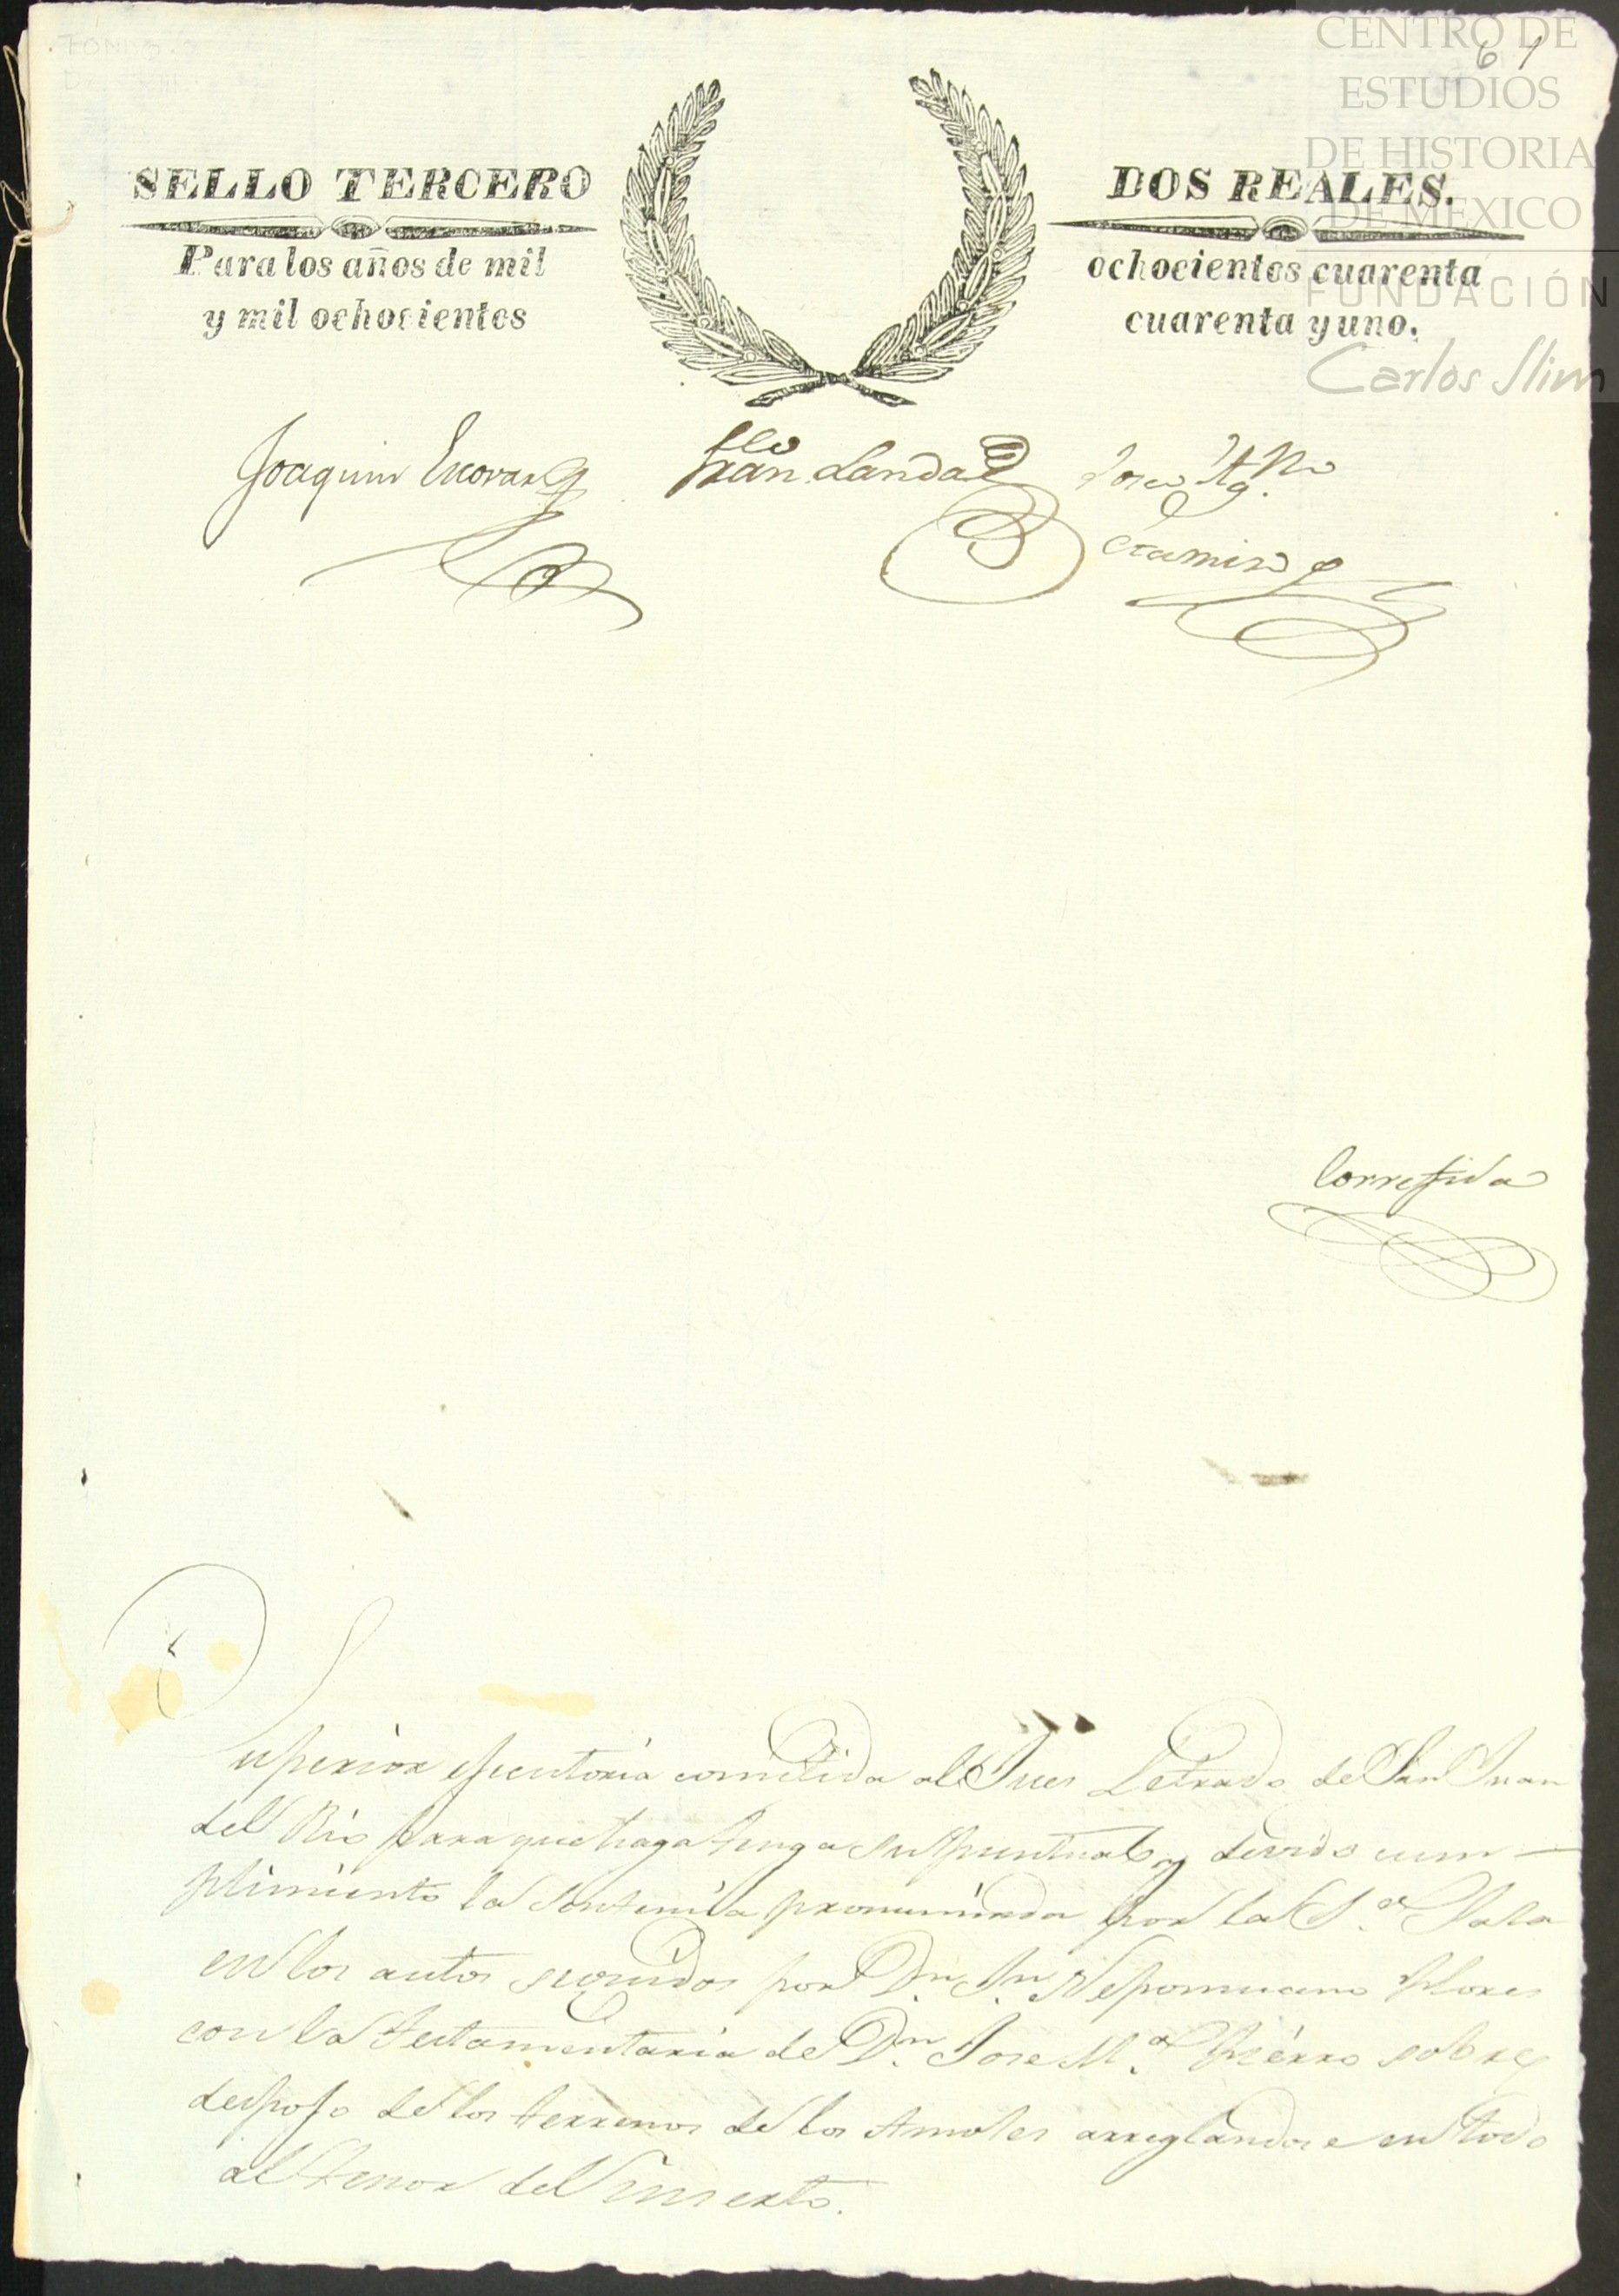 CENTRO DE
ESTUDIOS
DE HISTORIA
DE MEXICO
FUNDACIÓN
Carlos Slim
61
SELLO TERCERO
DOS REALES.
Para los años de mil
ochocientos cuarenta
y mil ochocientos
cuarenta y uno.
Joaquin Escovar
Landa
Corregida
Superior ejecutoria cometida al Jues Letrado de San Juan
del Rio para que haga tenga su puntual y devido cum-
plimiento la Sentencia pronunciada por la Sala
en los autos seguidos por Dn. Jn. Nepomuceno Flores
con la testamentaria de Dn. Jose Ma. sobre
despojo de los terrenos de los Amoles arreglandose en todo
al tenor del inserto.